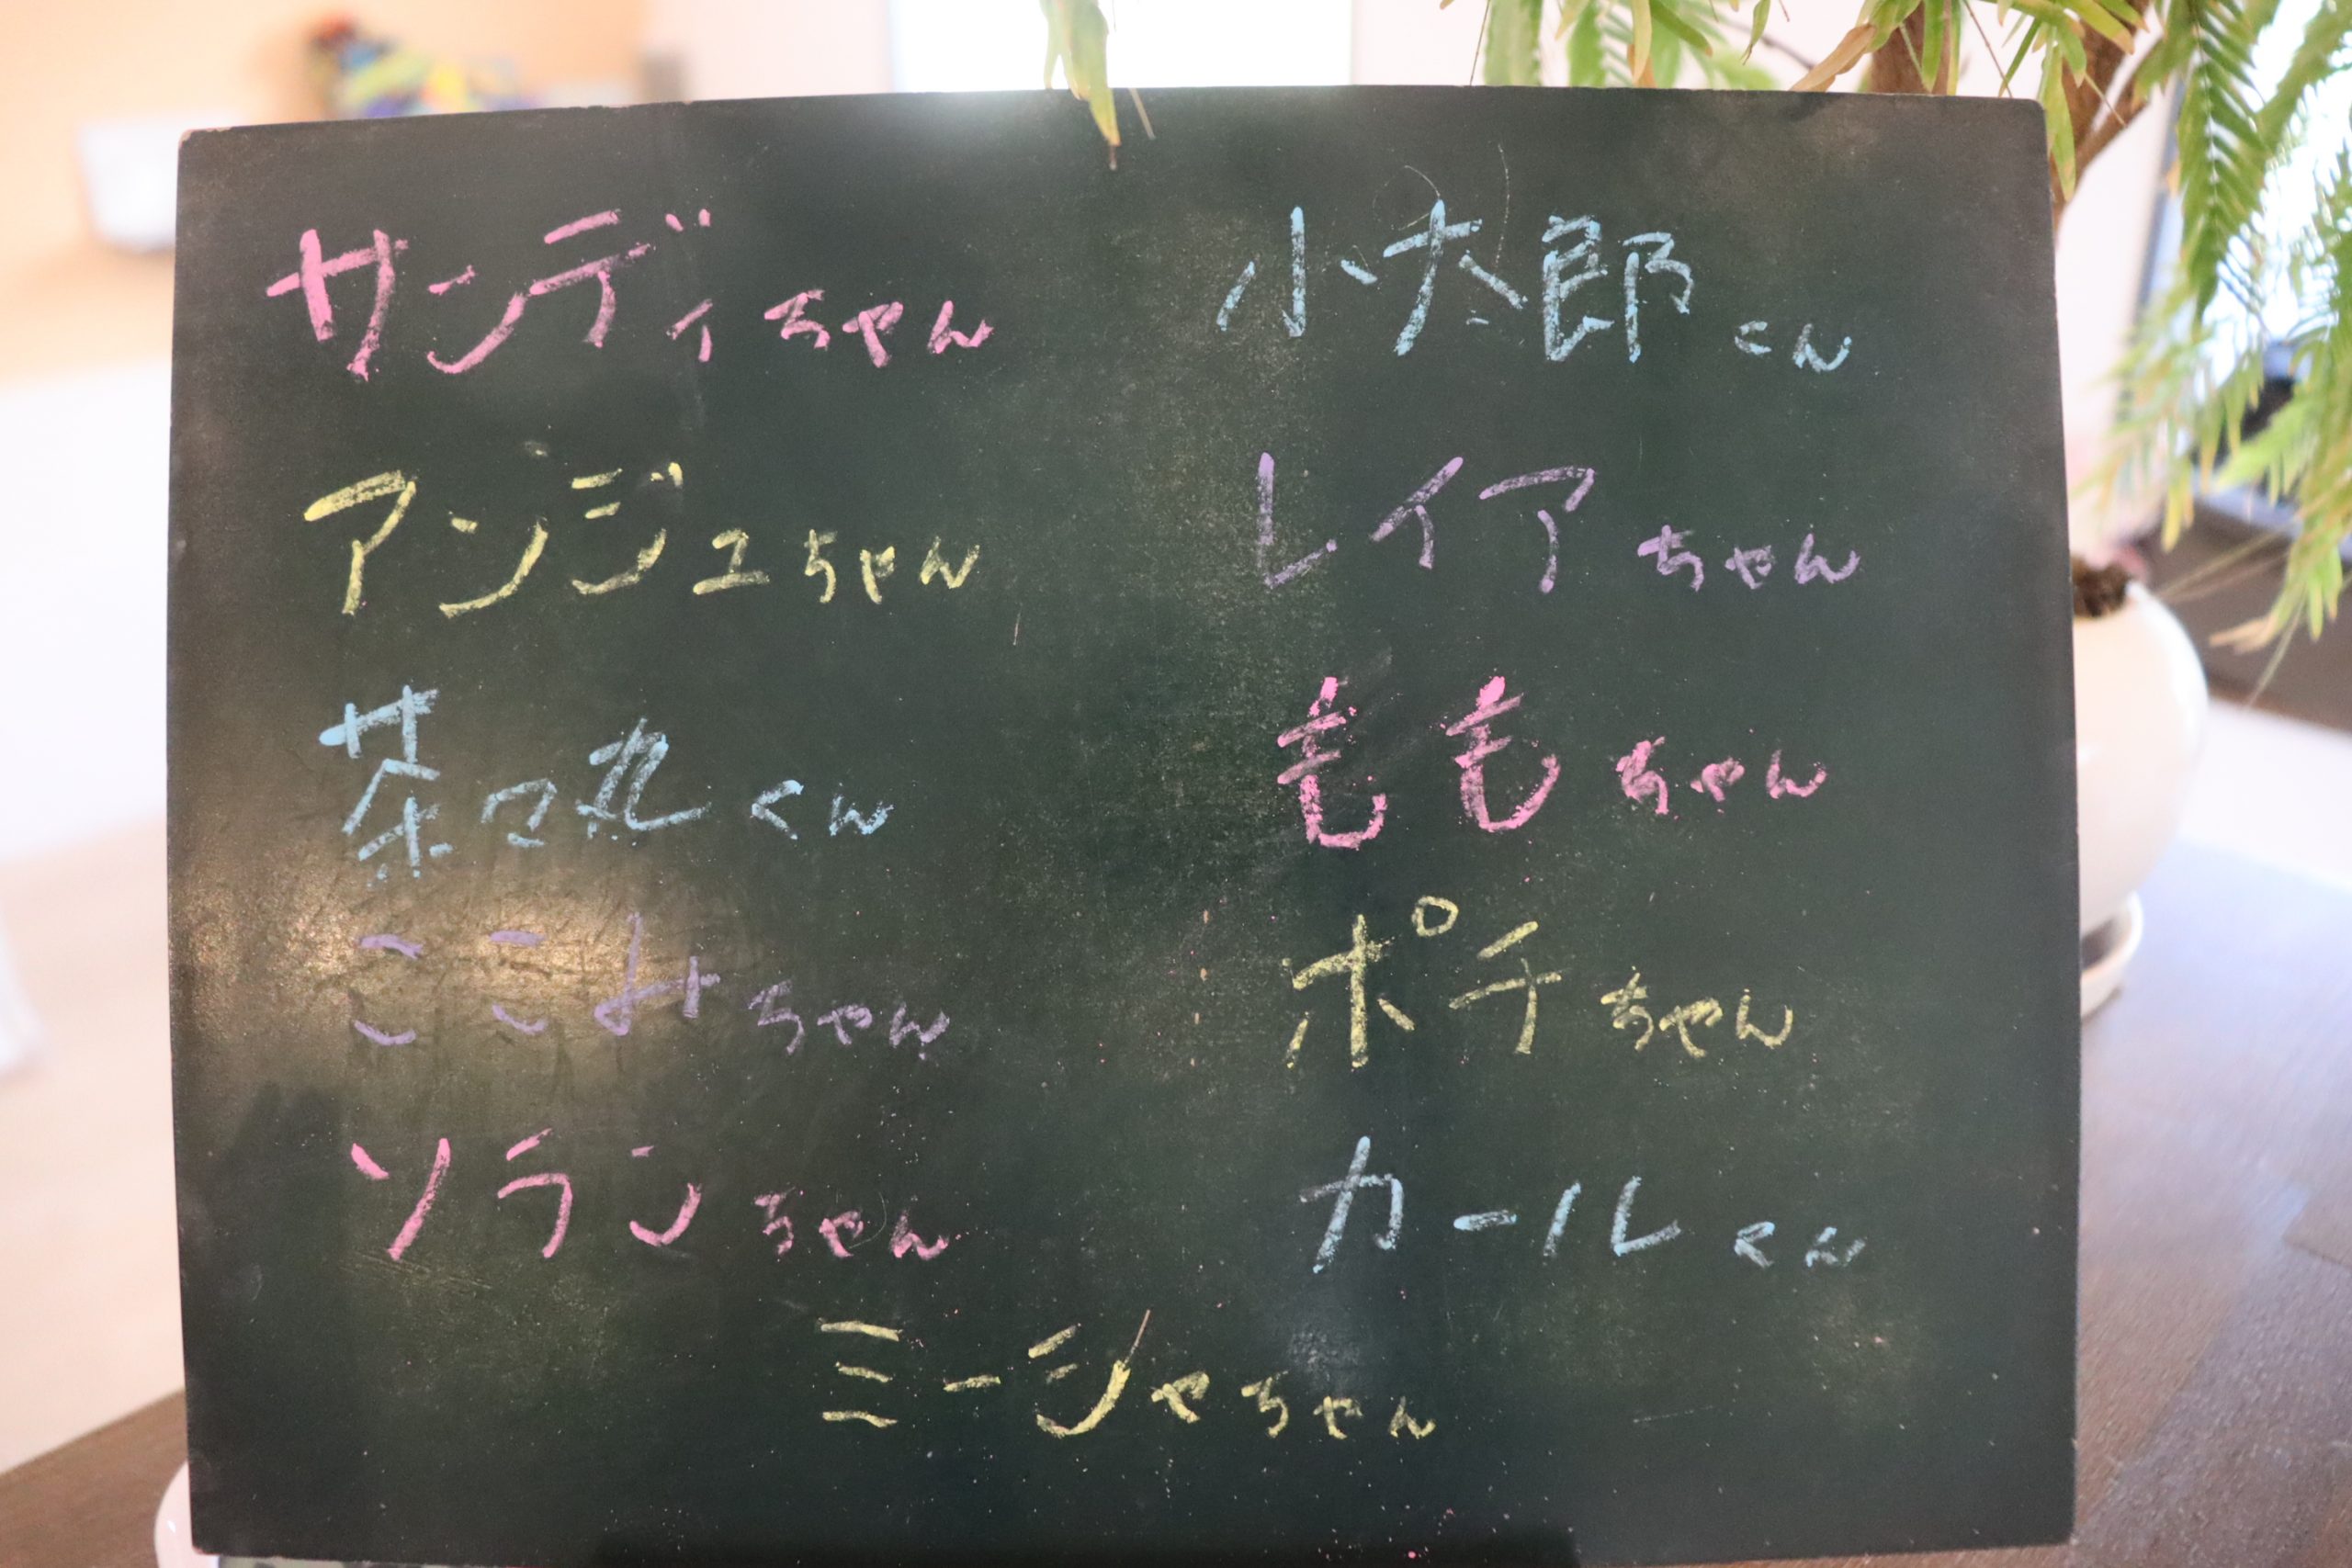 サンディちゃん
小太郎くん
アンジュちゃん
レイアちゃん
茶々丸くん
ももちゃん
ここみちゃん
ポチちゃん
ソランちゃん
カールくん
ミーシャちゃん